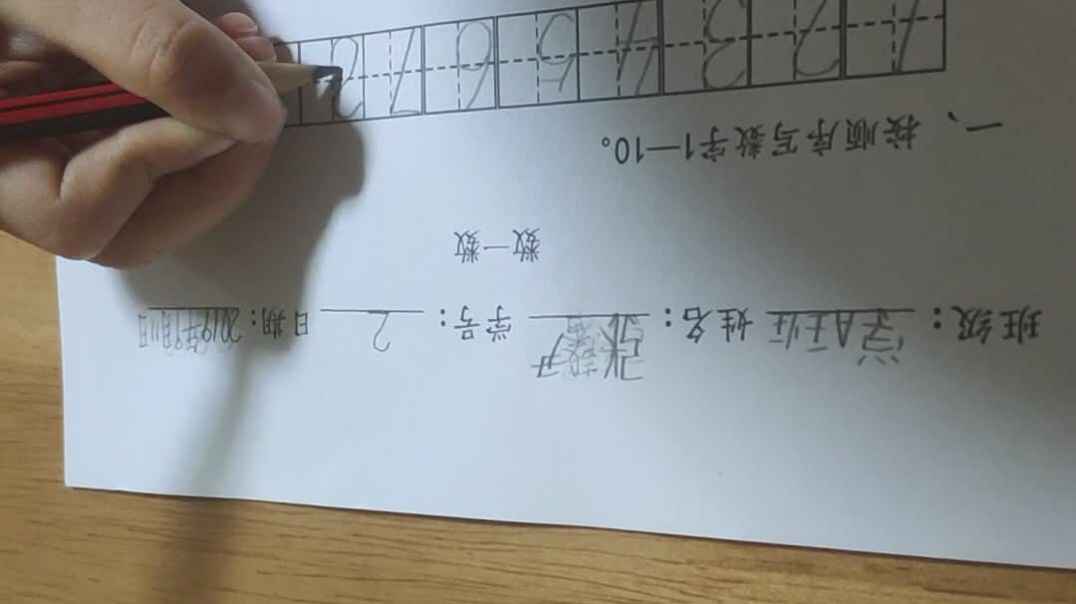 班级：学 姓名：张 学号：2 日期：2019年
数一数
一、按顺序写数字1—10。
1 2 3 4 5 6 7 8